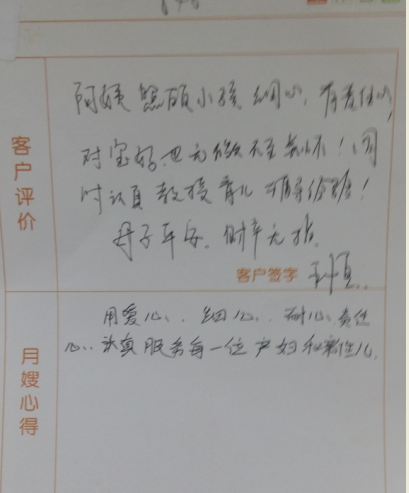 客户评价
阿姨照顾小孩细心,有责任心,
对宝妈也无微不至关怀!同
时认真教授育儿
母子平安。
客户签字
月嫂心得
用爱心、细心、耐心、责任
心、认真服务每一位产妇和新生儿.